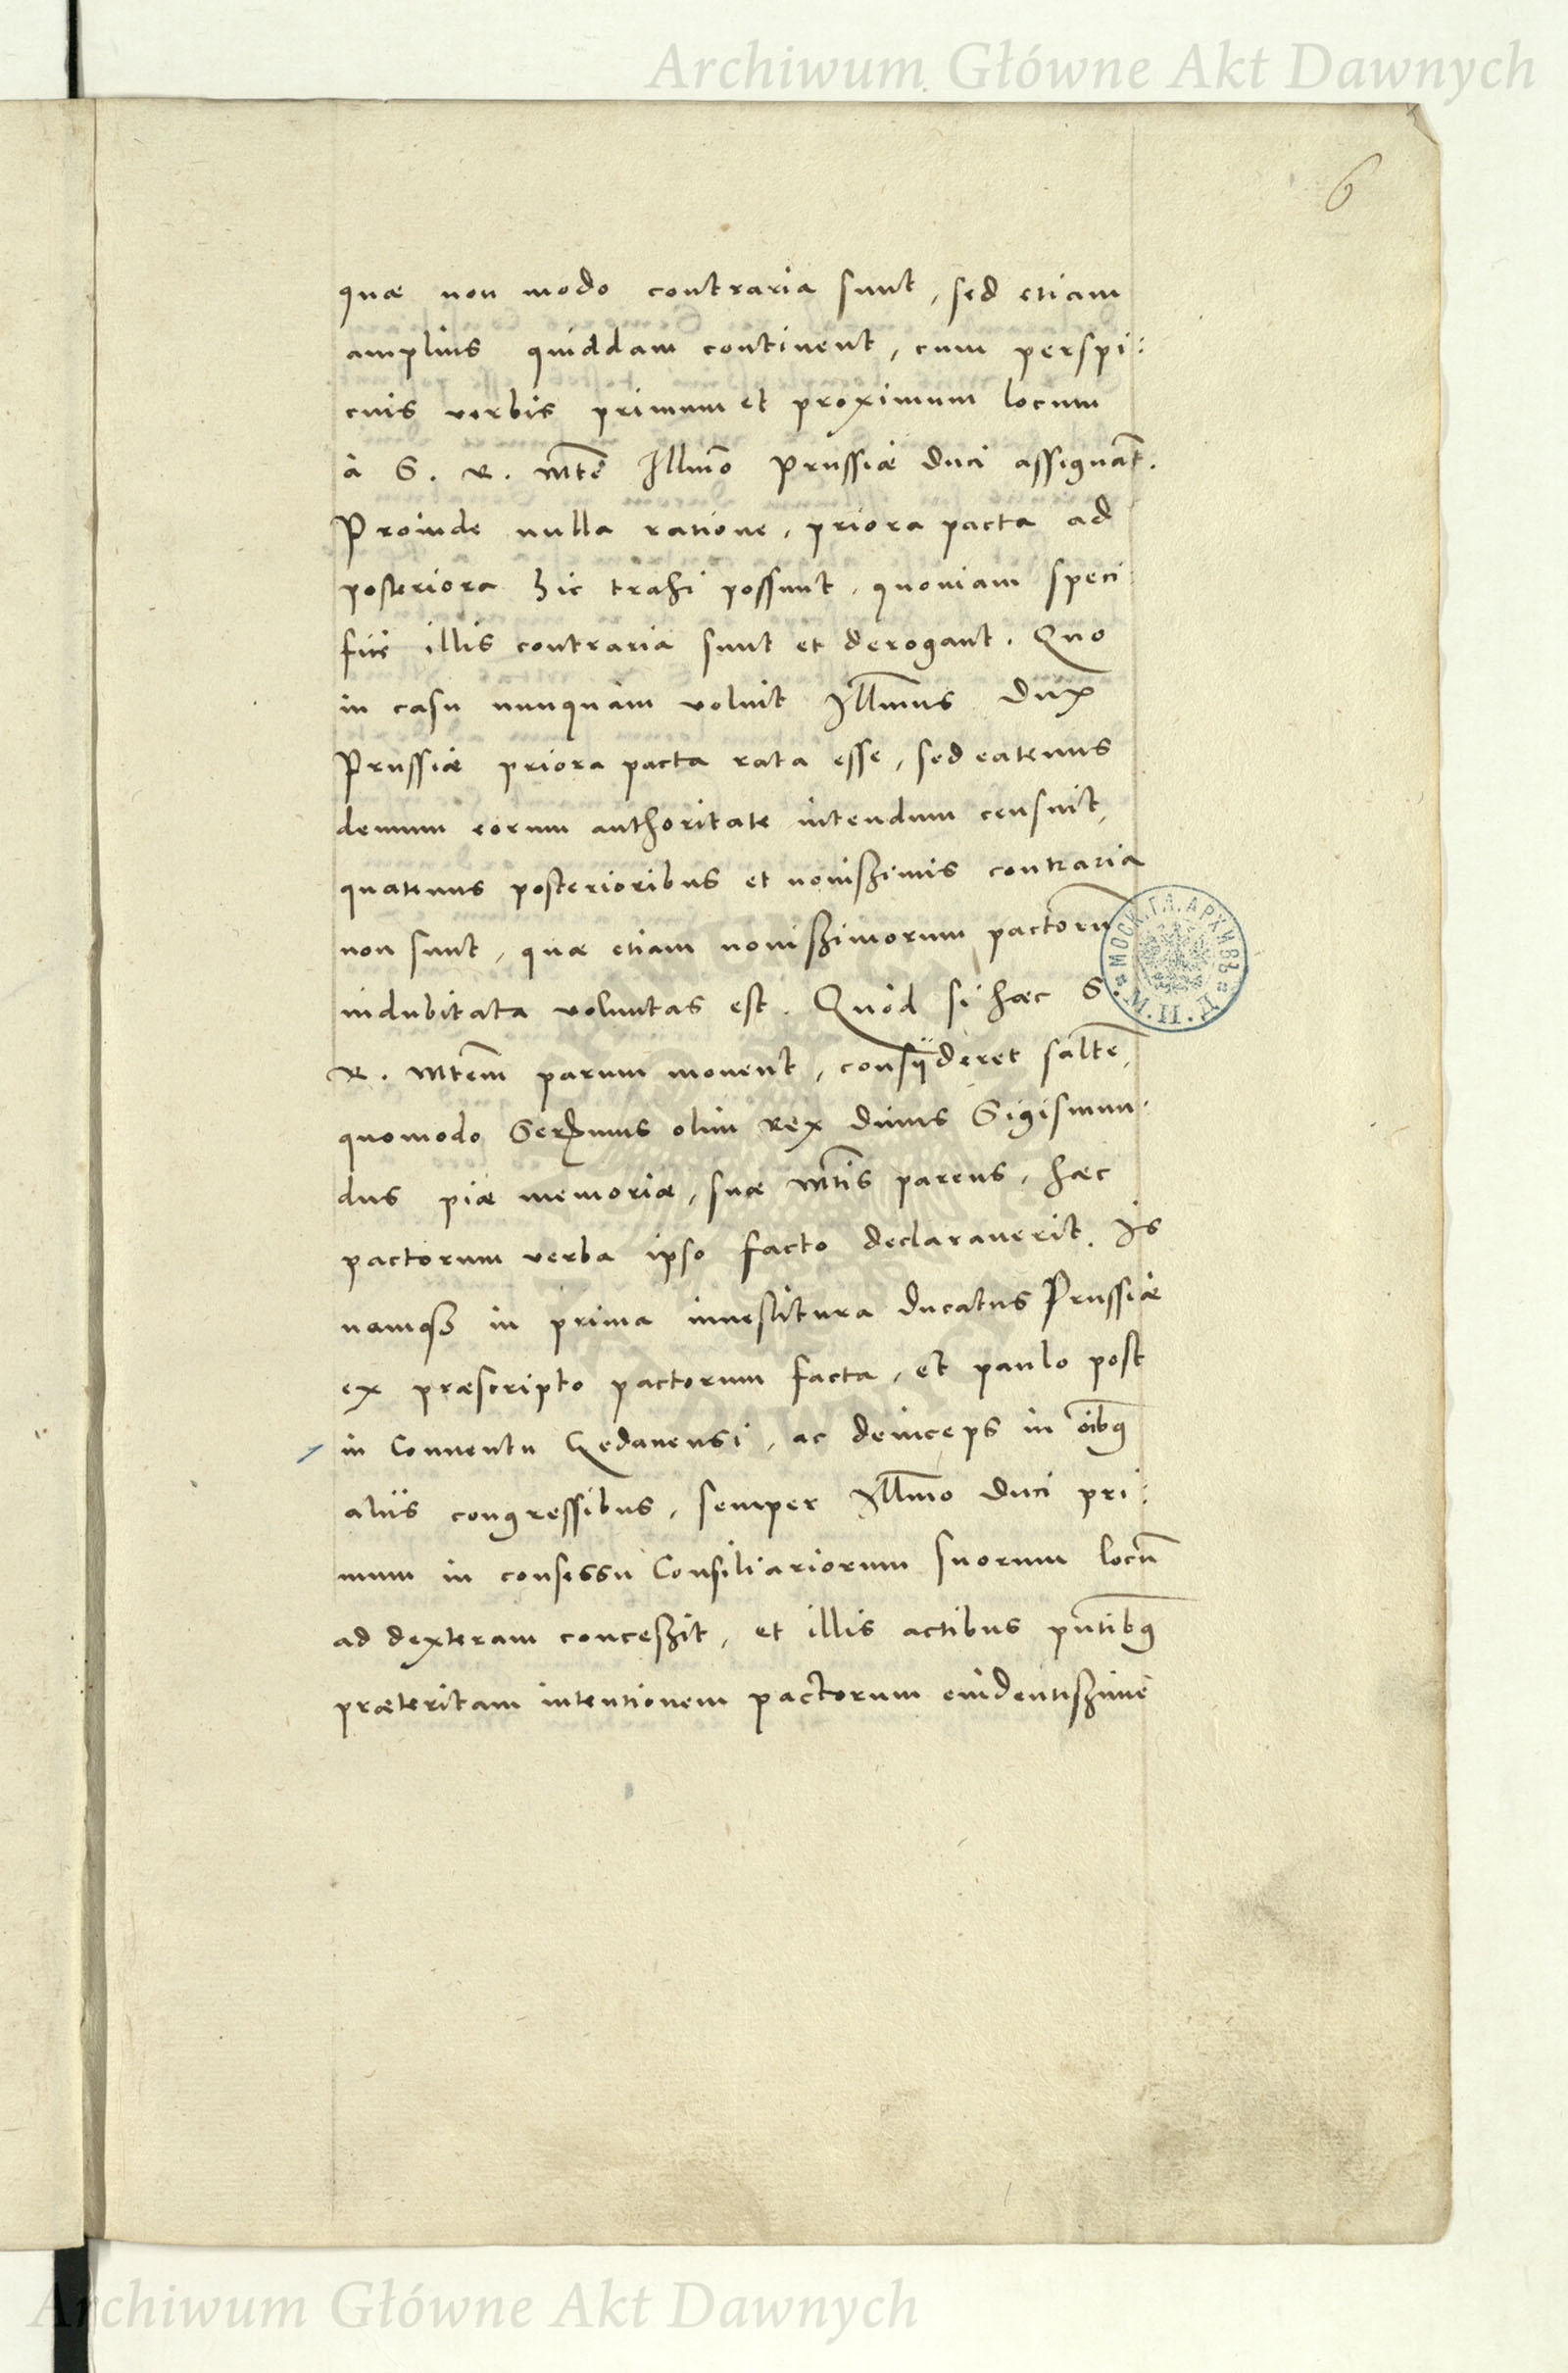 Archiwum Główne Akt Dawnych
6
quæ non modo contraria sunt, sed etiam
amplius quiddam continent, cum perspi:
cuis verbis primum et proximum locum
à S. R. Mte Illmo Prussiæ Duci assignāt.
Proinde nulla ratione, priora pacta ad
posteriora hic trahi possunt, quoniam speci:
fice illis contraria sunt et derogant. Quo
in casu nunquam voluit Illmus Dux
Prussiæ priora pacta rata esse, sed eatenus
demum eorum authoritate nitendum censuit,
quatenus posterioribus et nouißimis contraria
non sunt, quæ etiam nouißimorum pactorū
indubitata voluntas est. Quod si hæc S.
R. Mtem parum mouent, consijderet saltē,
quomodo Serenmus olim Rex Diuus Sigismun:
dus piæ memoriæ, suæ Mtis parens, hæc
pactorum verba ipso facto declarauerit. Is
namqz in prima inuestitura Ducatus Prussiæ
ex præscripto pactorum facta, et paulo post
in Conuentu Gedanensi, ac deinceps in oībq
alijs congressibus, semper Illmo Duci pri:
mum in consessu Consiliariorum suorum locū
ad dexteram conceßit, et illis actibus pntibq
præteritam intentionem pactorum euidentißime
МОСК. ГЛ. АРХИВЪ
М. И. Д.
Archiwum Główne Akt Dawnych